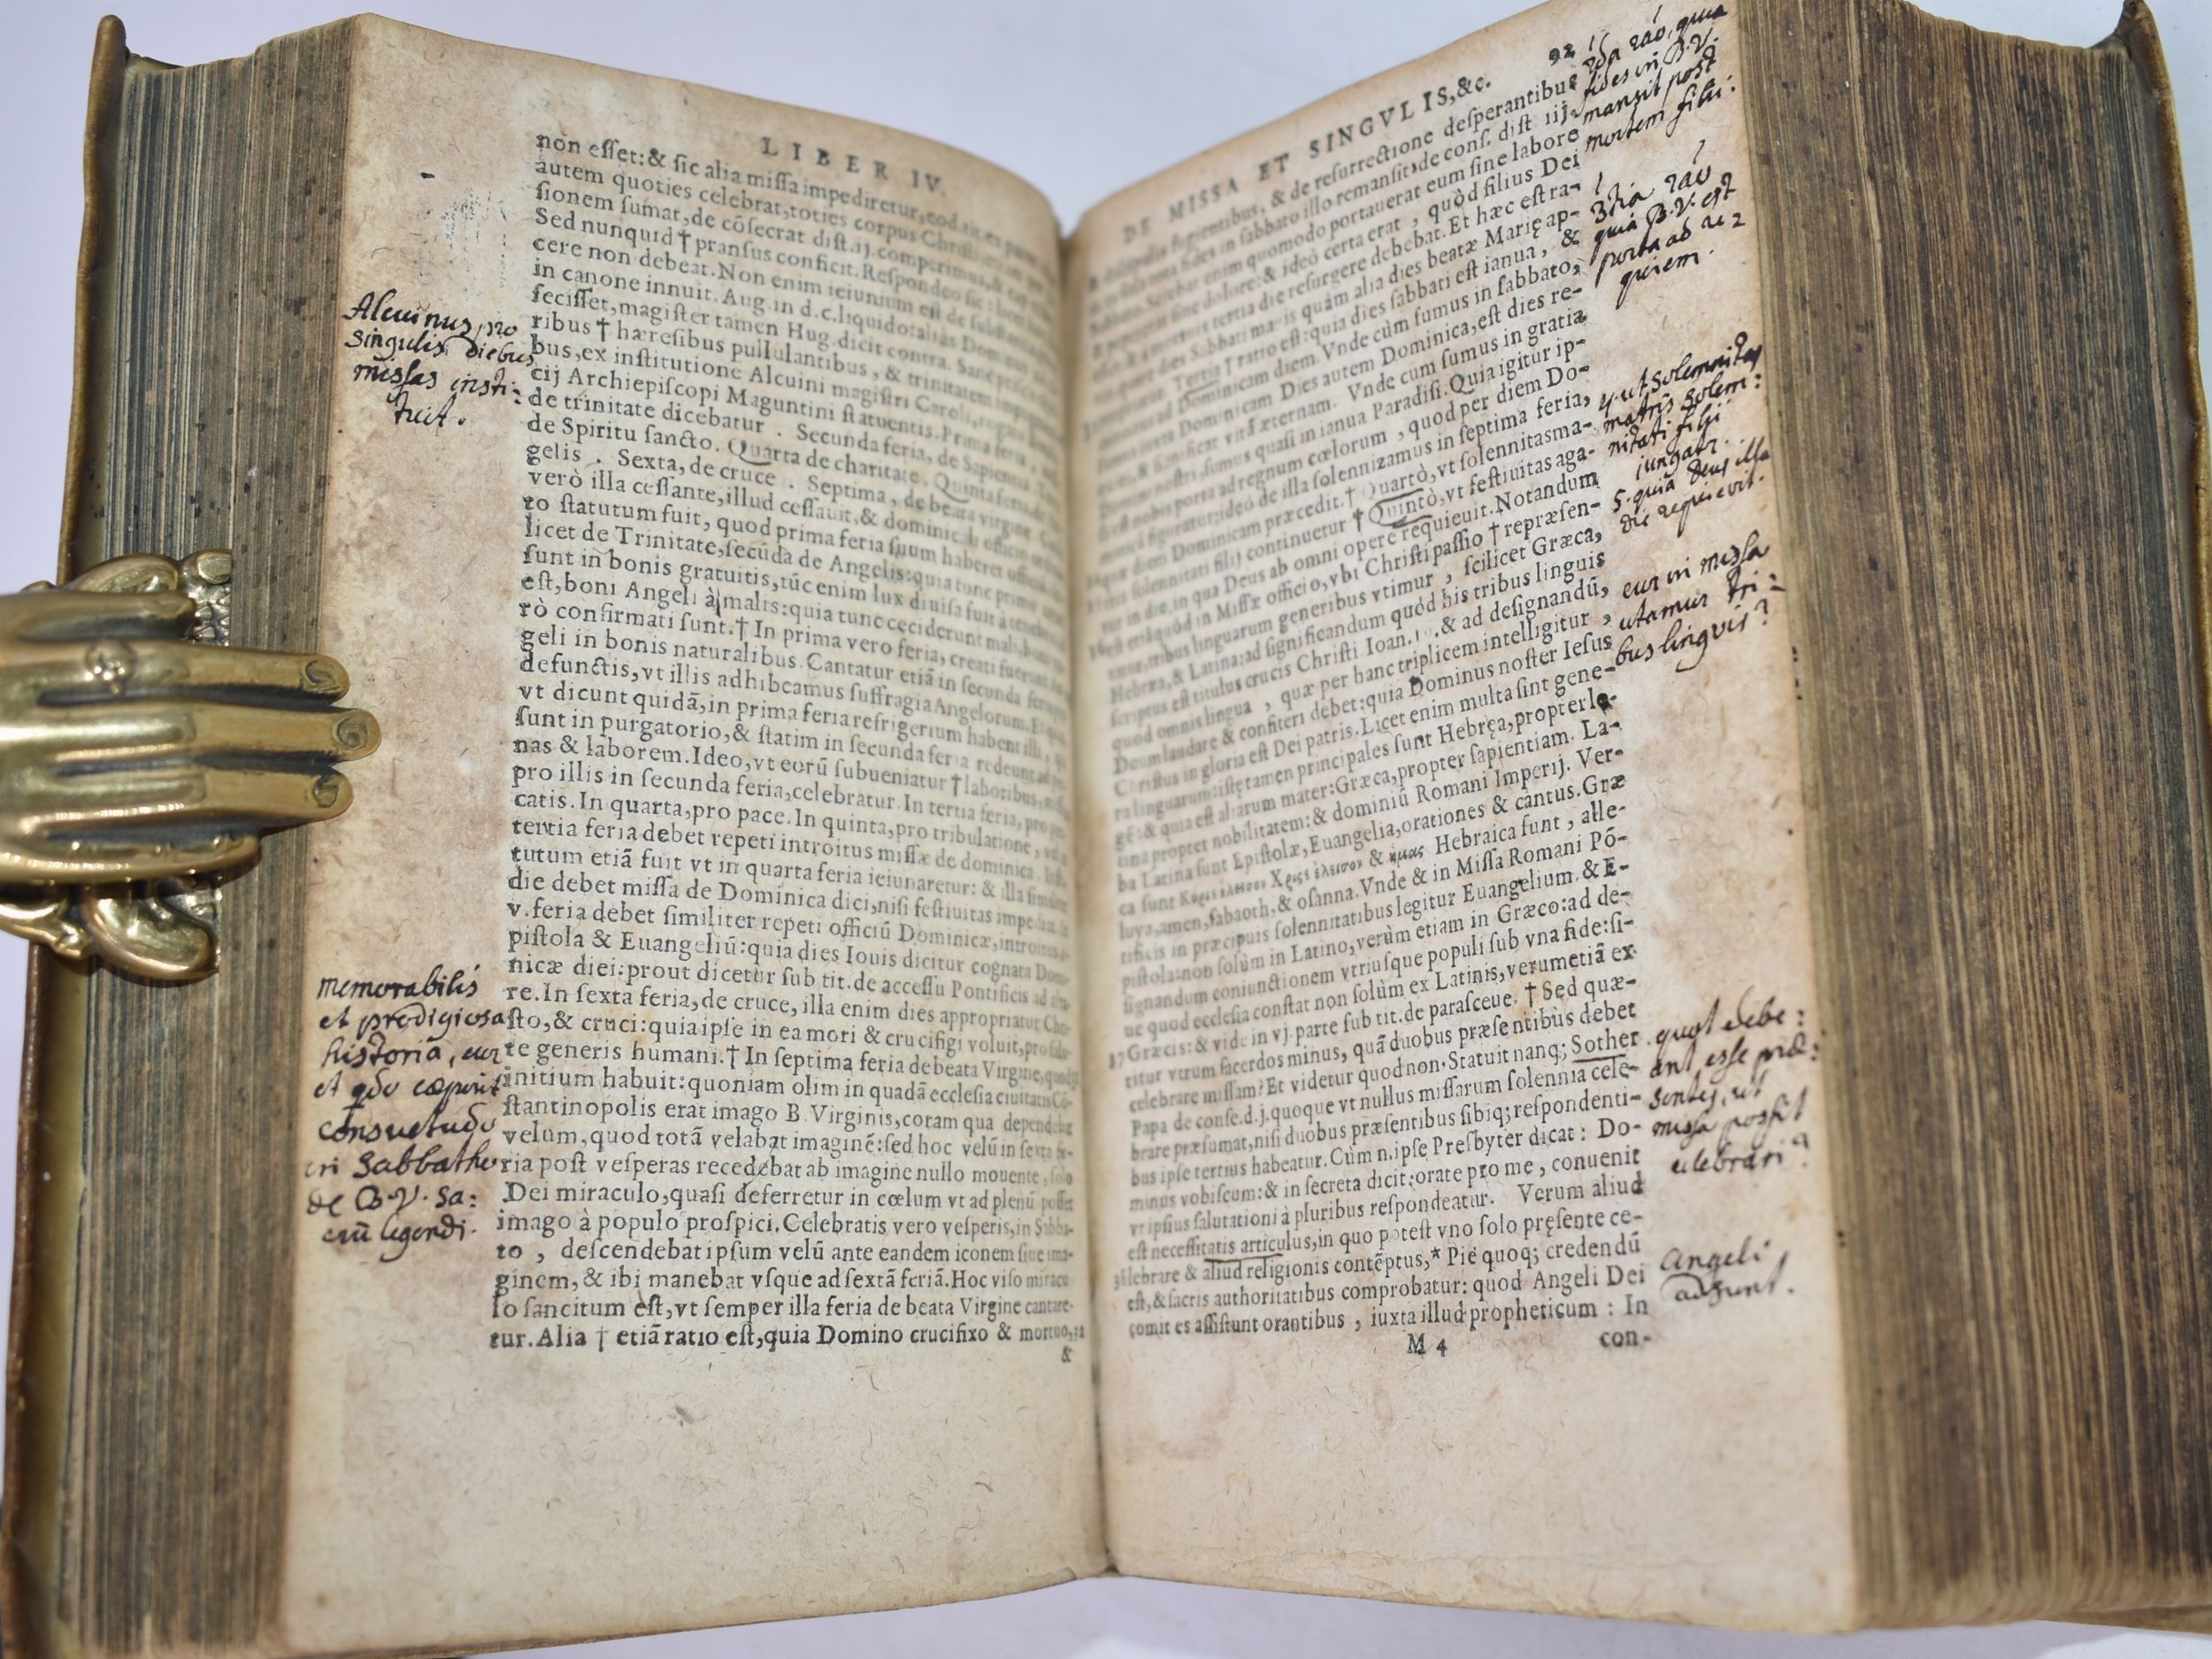 LIBER IV.
non esset: & sic alia missa impediretur, eod. tit. ex parte.
autem quoties celebrat, toties corpus Christi
sionem sumat, de cōsecrat dist. ij. comperimus, &
Sed nunquid † pransus conficit. Respondeo
cere non debeat. Non enim ieiunium est de substantia
in canone innuit. Aug. in d. c. liquido: alias Dominus
fecisset, magister tamen Hug. dicit contra. Sanè
ribus † hæresibus pullulantibus, & trinitatem
bus, ex institutione Alcuini magistri Caroli, rogatu
cij Archiepiscopi Maguntini statuentis. Prima feria
de trinitate dicebatur. Secunda feria, de Sapientia
de Spiritu sancto. Quarta de charitate. Quinta feria de
gelis. Sexta, de cruce. Septima, de beata virgine
verò illa cessante, illud cessauit, & dominicali officio
to statutum fuit, quod prima feria suum haberet
licet de Trinitate, secūda de Angelis: quia tunc primo
sunt in bonis gratuitis, tūc enim lux diuisa fuit à tenebris
est, boni Angeli à malis: quia tunc ceciderunt mali, boni
rò confirmati sunt. † In prima vero feria, creati fuerunt
geli in bonis naturalibus. Cantatur etiā in secunda feria
defunctis, vt illis adhibeamus suffragia Angelorum. Et
vt dicunt quidā, in prima feria refrigerium habent illi, qui
sunt in purgatorio, & statim in secunda feria redeunt ad
nas & laborem. Ideo, vt eorū subueniatur † laboribus,
pro illis in secunda feria, celebratur. In tertia feria, pro
catis. In quarta, pro pace. In quinta, pro tribulatione,
tertia feria debet repeti introitus missæ de dominica.
tutum etiā fuit vt in quarta feria ieiunaretur: & illa
die debet missa de Dominica dici, nisi festiuitas impediat.
v. feria debet similiter repeti officiū Dominicæ, introitus
pistola & Euangeliū: quia dies Iouis dicitur cognata Domi-
nicæ diei: prout dicetur sub tit. de accessu Pontificis ad
re. In sexta feria, de cruce, illa enim dies appropriatur Chri-
sto, & cruci: quia ipse in ea mori & crucifigi voluit, pro salu-
te generis humani. † In septima feria de beata Virgine, quod
initium habuit: quoniam olim in quadā ecclesia ciuitatis Cō-
stantinopolis erat imago B. Virginis, coram qua dependebat
velum, quod totā velabat imaginē: sed hoc velū in sexta fe-
ria post vesperas recedebat ab imagine nullo mouente, solo
Dei miraculo, quasi deferretur in cœlum vt ad plenū posset
imago à populo prospici. Celebratis vero vesperis, in Sabba-
to, descendebat ipsum velū ante eandem iconem siue ima-
ginem, & ibi manebat vsque ad sextā feriā. Hoc viso miracu-
lo sancitum est, vt semper illa feria de beata Virgine cantare-
tur. Alia † etiā ratio est, quia Domino crucifixo & mortuo,
&
Alcuinus pro
singulis diebus
missas insti:
tuit.
memorabilis
et prodigiosa
historia, cur
et qdo cœperit
consuetudo
in Sabbatho
de B. V. sa:
crū legendi.
DE MISSA ET SINGVLIS, &c. 92
discipulis fugientibus, & de resurrectione desperantibus
in sola fides in sabbato illo remansit, de cons. dist iij.
Sciebat enim quomodo portauerat eum sine labore
sine dolore: & ideò certa erat, quòd filius Dei
à mortuis tertia die resurgere debebat. Et hæc est ra-
dies Sabbati magis quàm alia dies beatæ Marię ap-
Tertia † ratio est: quia dies sabbati est ianua, &
ad Dominicam diem. Vnde cùm sumus in sabbato,
Dominicam Dies autem Dominica, est dies re-
& significat vitā æternam. Vnde cum sumus in gratia
nostri, sumus quasi in ianua Paradisi. Quia igitur ip-
est nobis porta ad regnum cœlorum, quod per diem Do-
figuratur: ideò de illa solennizamus in septima feria,
diem Dominicam præcedit. † Quartò, vt solennitas ma-
solennitati filij continuetur † Quintò, vt festiuitas aga-
tur in die, in qua Deus ab omni opere requieuit. Notandum
est quòd in Missæ officio, vbi Christi passio † repræsen-
tatur, tribus linguarum generibus vtimur, scilicet Græca,
Hebræa, & Latina: ad significandum quòd his tribus linguis
scriptus est titulus crucis Christi Ioan. & ad designandū,
quod omnis lingua, quæ per hanc triplicem intelligitur,
Deum laudare & confiteri debet: quia Dominus noster Iesus
Christus in gloria est Dei patris. Licet enim multa sint gene-
ra linguarum: istę tamen principales sunt Hebręa, propter le-
gē: & quia est aliarum mater: Græca, propter sapientiam. La-
tina propter nobilitatem: & dominiū Romani Imperij. Ver-
ba Latina sunt Epistolæ, Euangelia, orationes & cantus. Græ
ca sunt Κύριε ἐλεισον Χριστε ἐλεισον & ημας Hebraica sunt, alle-
luya, amen, sabaoth, & osanna. Vnde & in Missa Romani Pō-
tificis in præcipuis solennitatibus legitur Euangelium. & E-
pistola: non solùm in Latino, verùm etiam in Græco: ad de-
signandum coniunctionem vtriusque populi sub vna fide: si-
ue quod ecclesia constat non solùm ex Latinis, verumetiā ex
Græcis: & vide in vj. parte sub tit. de parasceue. † Sed quæ-
ritur vtrum sacerdos minus, quā duobus præsentibus debet
celebrare missam? Et videtur quod non. Statuit nanq; Sother
Papa de conse. d. j. quoque vt nullus missarum solennia cele-
brare præsumat, nisi duobus præsentibus sibiq; respondenti-
bus ipse tertius habeatur. Cùm n. ipse Presbyter dicat: Do-
minus vobiscum: & in secreta dicit: orate pro me, conuenit
vt ipsius salutationi à pluribus respondeatur. Verum aliud
est necessitatis articulus, in quo potest vno solo pręsente ce-
lebrare & aliud religionis contēptus,* Piè quoq; credendū
est, & sacris authoritatibus comprobatur: quod Angeli Dei
comites assistunt orantibus, iuxta illud propheticum: In
M 4
con-
2da rao, quia
fides in B. V.
mansit post
mortem filii.
3tia rao
quia B. V. est
porta ad re=
quiem.
4. ut solemnitas
matris solem:
nitati filij
jungatr.
5. quia Deus illa
die requievit.
cur in missa
utamur tri=
bus linguis?
quot debe:
ant esse præ:
sentes, ut
missa possit
celebrari?
Angeli
adsunt.